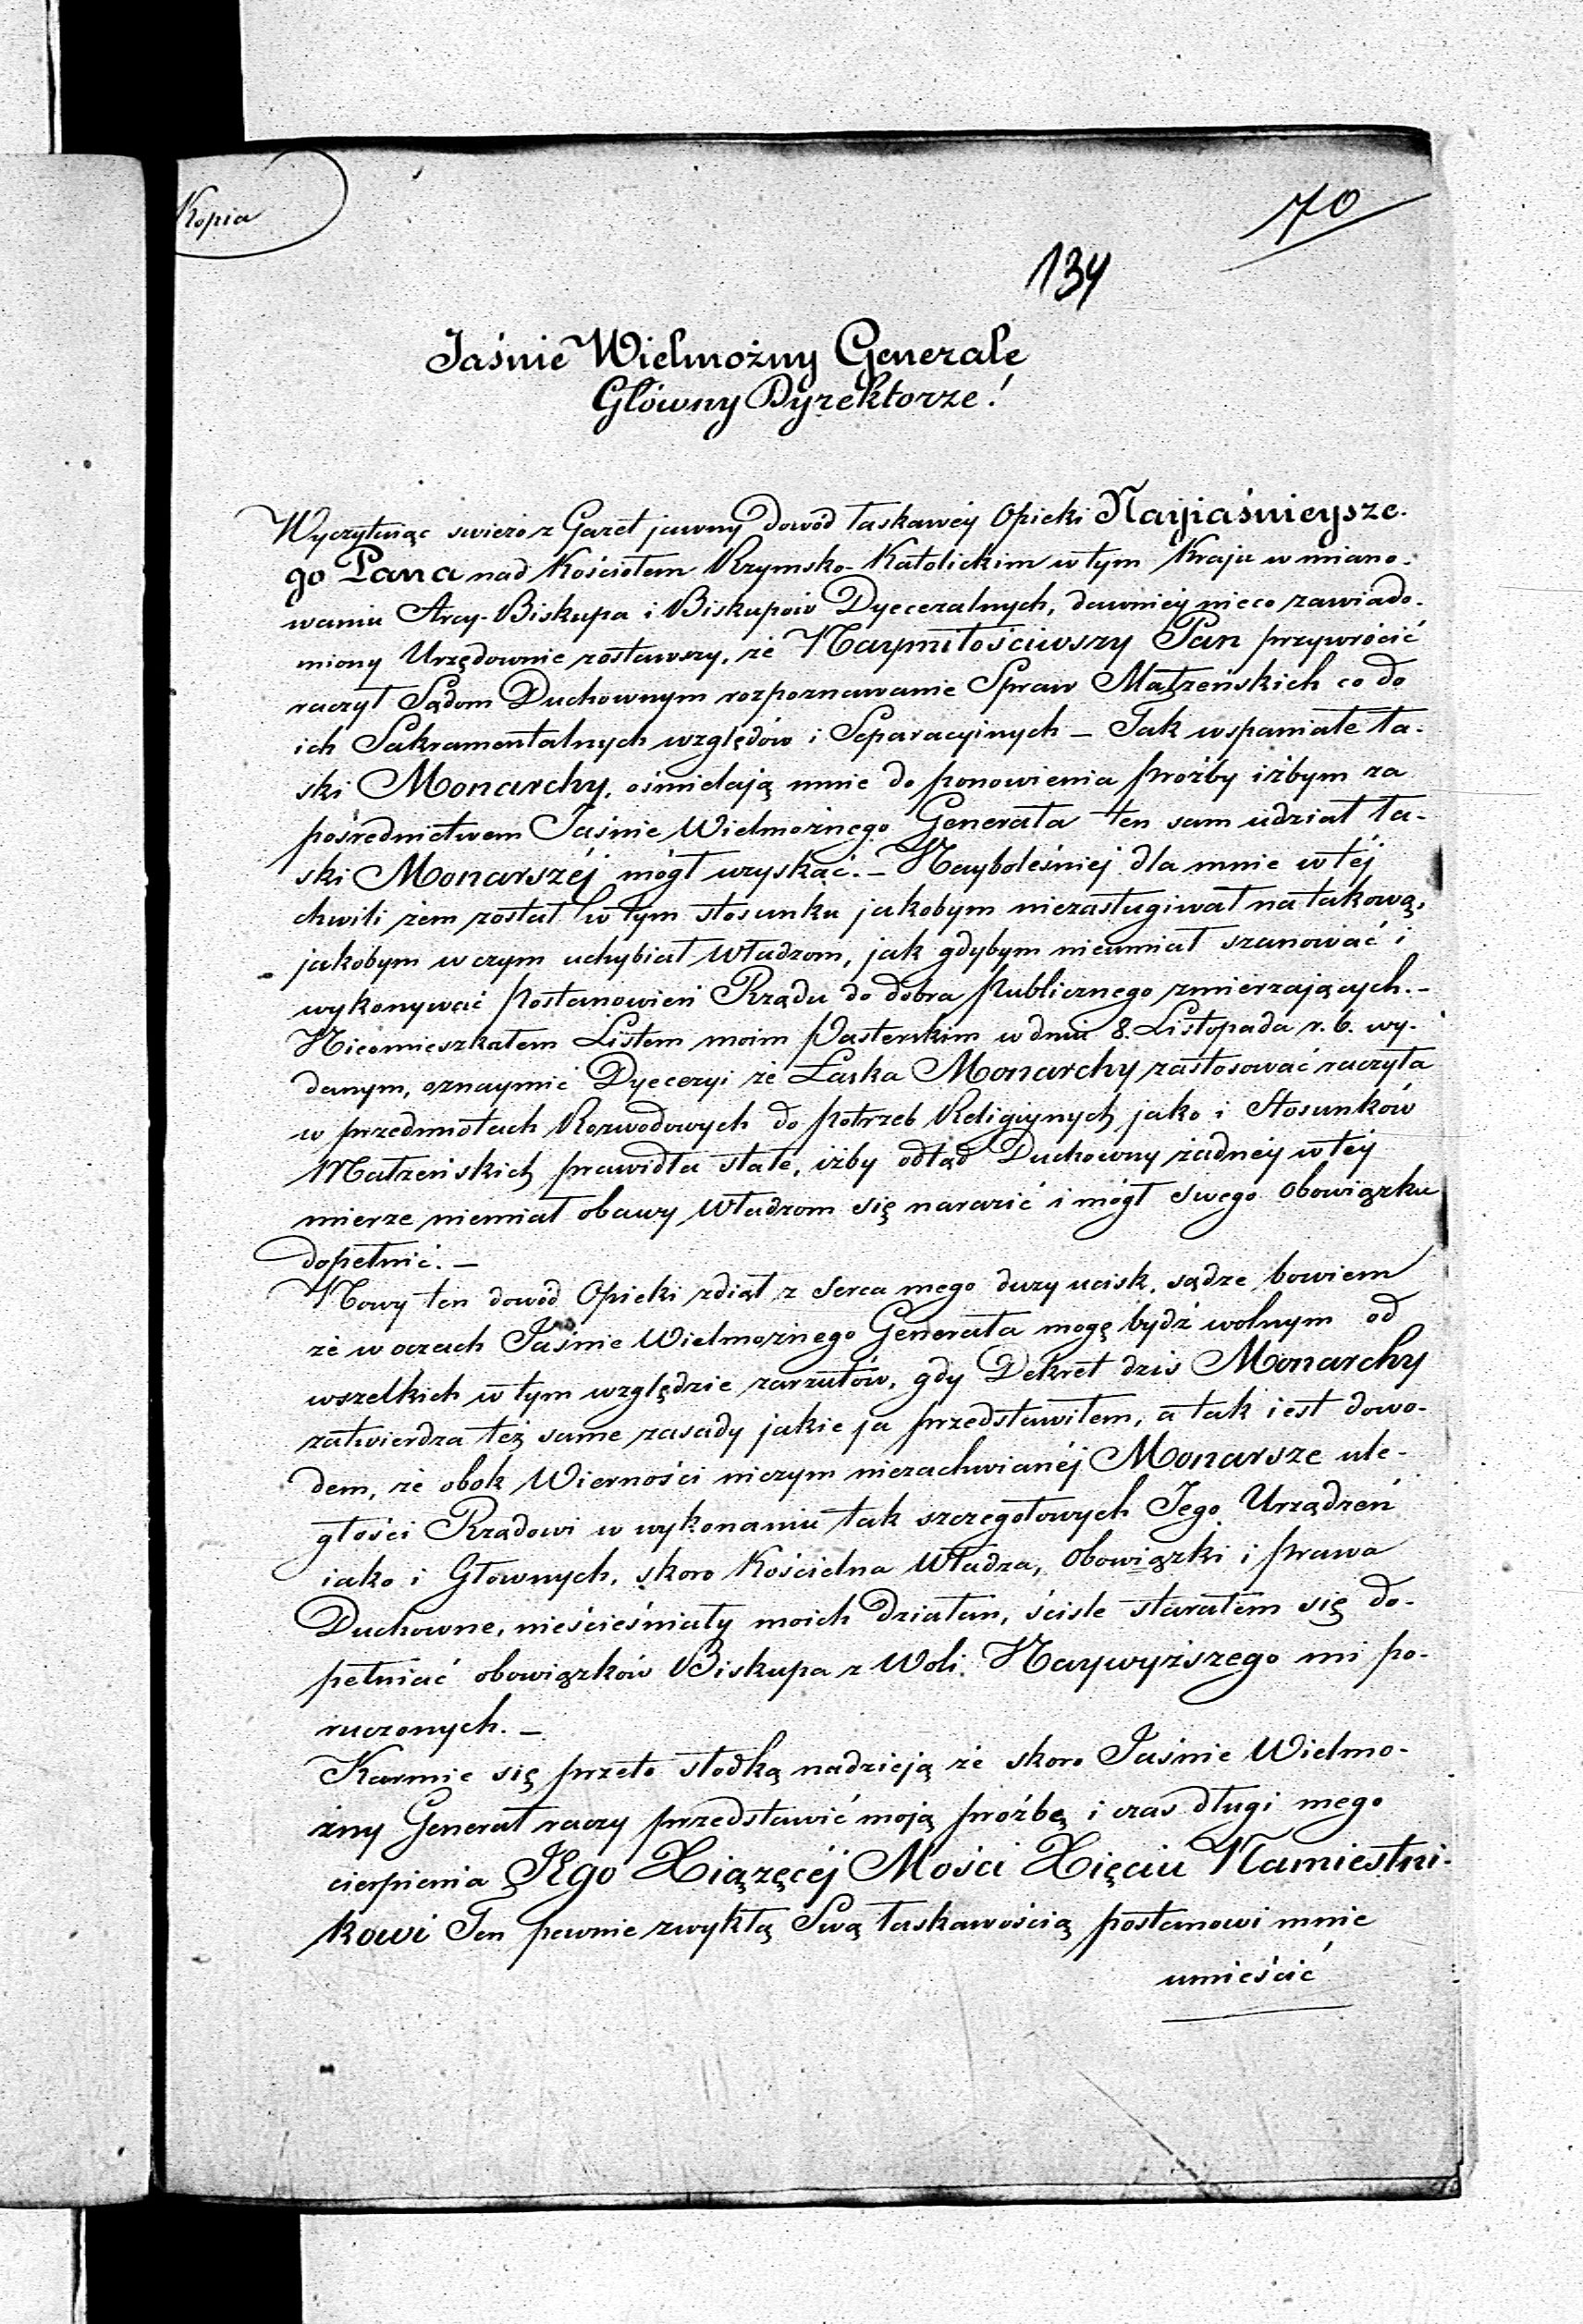 Kopia
70
134
Jaśnie Wielmożny Generale
Główny Dyrektorze!
Wyczytuiąc swieżo z Gazet jawny dowód łaskawéy Opieki Nayjaśnieysze-
go Pana nad Kościołem Rzymsko-Katolickim w tym Kraju w miano-
waniu Arcy-Biskupa i Biskupów Dyecezalnych, dawniéy nieco zawiado-
miony Urzędownie zostawszy, że Naymiłościwszy Pan przywrócić
raczył Sądom Duchownym rozpoznawanie Spraw Małżeńskich co do
ich Sakramentalnych względów i Separacyinych – Tak wspaniałe ła-
ski Monarchy, ośmielają mnie do ponowienia prośby iżbym za
pośrednictwem Jaśnie Wielmożnego Generała ten sam udział ła-
ski Monarszéj mógł uzyskać. – Nayboleśniéj dla mnie w téj
chwili żem został w tym stosunku jakobym niezasługiwał na takową,
jakobym w czym uchybiał Władzom, jak gdybym nieumiał szanować i
wykonywać Postanowień Rządu do dobra Publicznego zmierzających. –
Nieomieszkałem Listem moim Pasterskim w dniu 8. Listopada r. b. wy-
danym, oznaymić Dyecezyi że Łaska Monarchy zastosować raczyła
w przedmiotach Rozwodowych do potrzeb Religiynych jako i Stosunków
Małżeńskich prawidła stałe, iżby odtąd Duchowny żadnéy w téy
mierze niemiał obawy Władzom się narazić i mógł swego Obowiązku
dopełnić. –
Nowy ten dowód Opieki zdiął z Serca mego duży ucisk, sądzę bowiem
że w oczach Jaśnie Wielmożnego Generała mogę bydź wolnym od
wszelkich w tym względzie zarzutów, gdy Dekret dziś Monarchy
zatwierdza też same zasady jakie ja przedstawiłem, a tak iest dowo-
dem, że obok Wierności niczym niezachwianéj Monarsze ule-
głości Rządowi w wykonaniu tak szczegółowych Jego Urządzeń
iako i Głownych, skoro Kościelna Władza, Obowiązki i prawa
Duchowne, nieścieśniały moich Działań, ściśle starałem się do-
pełniać obowiązków Biskupa z Woli Naywyższego mi po-
ruczonych. –
Karmię się przeto słodką nadzieją że skoro Jaśnie Wielmo-
żny Generał raczy przedstawić moją prośbę i czas długi mego
cierpienia Jego Xiążęcéj Mości Xięciu Namiestni-
kowi Ten pewnie zwykłą Swą łaskawością postanowi mnie
umieścić